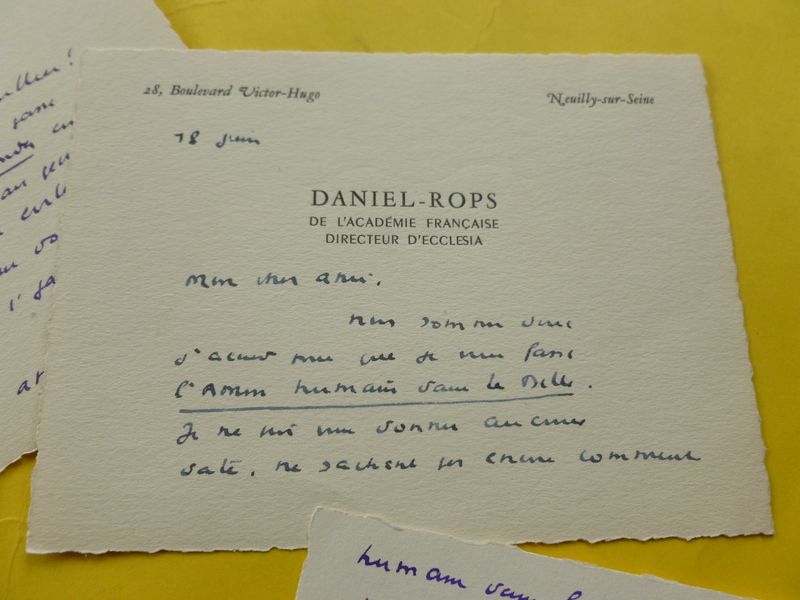 28, Boulevard Victor-Hugo
Neuilly-sur-Seine
18 juin
DANIEL-ROPS
DE L'ACADÉMIE FRANÇAISE
DIRECTEUR D'ECCLESIA
Mon cher ami,
nous sommes donc
d'accord pour que je vous fasse
l'Amour humain dans la Bible.
Je ne puis vous donner aucune
date, ne sachant pas encore comment
humain dans